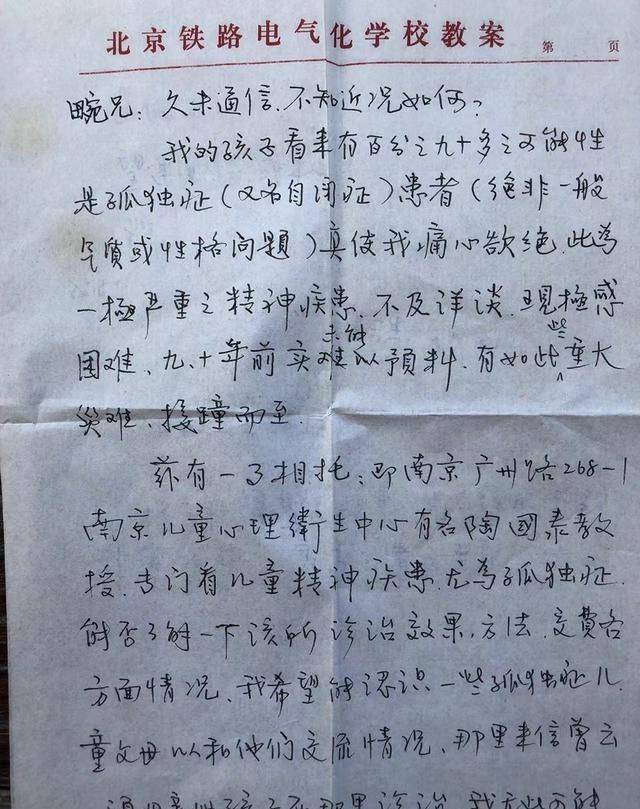 北京铁路电气化学校教案 第 页
畹兄：久未通信，不知近况如何？
我的孩子看来有百分之九十多之可能性
是孤独症（又名自闭症）患者（绝非一般
气质或性格问题）真使我痛心欲绝，此為
一極严重之精神疾患，不及详谈，現極感
困难，九、十年前实未能難以預料，有如此些重大
災难，接踵而至。
兹有一事相托：即南京广州路268-1
南京儿童心理衛生中心有名陶國泰教
授，专门看儿童精神疾患，尤為孤独症。
能否了解一下该所诊治效果，方法，交費各
方面情况，我希望能認识一些孤独症儿
童父母以和他们交流情况，那里来信曾云
诊治